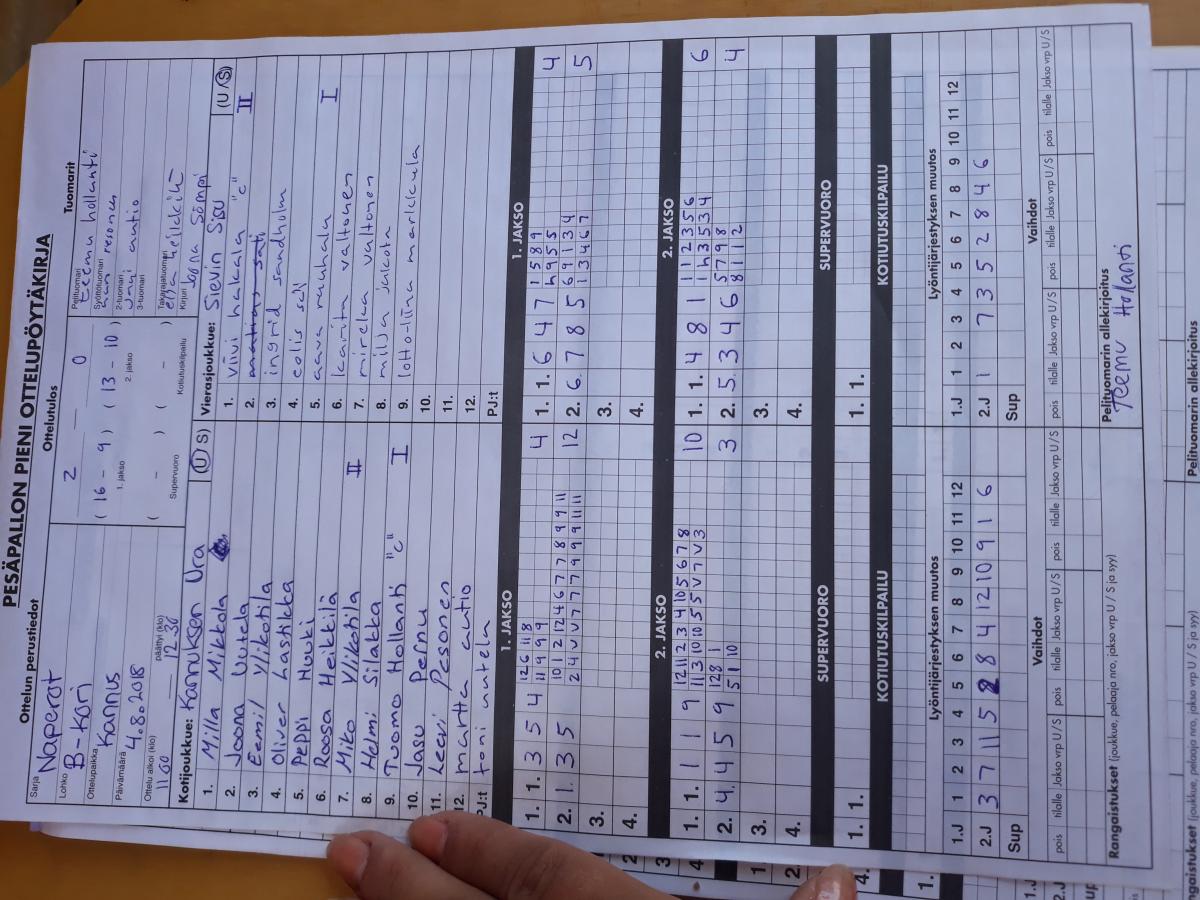 PESÄPALLON PIENI OTTELUPÖYTÄKIRJA
Ottelun perustiedot
Ottelutulos
Tuomarit
Sarja
Naperot
Lohko
B-Kori
Ottelupaikka
Kannus
Päivämäärä
4.8.2018
Ottelu alkoi (klo)
päättyi (klo)
11 00
12.30
2 — 0
( 16 - 9 ) ( 13 - 10 )
1. jakso
2. jakso
( - ) ( - )
Supervuoro
Kotiutuskilpailu
Pelituomari
teemu hollanti
Syöttötuomari
2-tuomari
3-tuomari
Takarajatuomari
Kirjuri
Joona Sömpi
Kotijoukkue: Kannuksen Ura (U/S)
1. Milla Mikkola
2. Joona Uutela
3. Eemil Ylikotila
4. Oliver Lastikka
5. Peppi Huuki
6. Roosa Heikkilä
7. Miko Ylikotila II
8. Helmi Silakka
9. Tuomo Hollanti "c" I
10. Jasu Pernu
11. Leevi Pesonen
12. martta autio
PJ:t toni uutela
Vierasjoukkue: Sievin Sisu (U/S)
1. viivi hakala "c" II
2.
3. ingrid sandholm
4.
5. aava rauhala
6. karita valtonen I
7. mirella valtonen
8. milja jalkota
9. lotta-liina markkula
10.
11.
12.
PJ:t
1. JAKSO
1. JAKSO
1. 1. 3 5 4
12 6 11 8
11 9 9 9
4
2. 1. 3 5
10 1 2 12 4 6 7 7 8 9 9 11
2 4 V V 7 7 7 9 9 9 11 11
12
3.
4.
1. 1. 6 4 7
1 5 8 9
4 9 5 5
4
2. 6. 7 8 5
6 9 1 3 4
1 3 4 6 7
5
3.
4.
2. JAKSO
2. JAKSO
1. 1. 1 1 9
12 11 2 3 4 10 5 6 7 8
11 3 10 10 5 5 V 7 V 3
10
2. 4. 4 5 9
12 8 1
5 1 10
3
3.
4.
1. 1. 4 8 1
1 1 2 3 5 6
1 4 3 5 3 4
6
2. 5. 3 4 6
5 7 9 8
8 1 1 2
4
3.
4.
SUPERVUORO
SUPERVUORO
1. 1.
1. 1.
KOTIUTUSKILPAILU
KOTIUTUSKILPAILU
Lyöntijärjestyksen muutos
1.J 1 2 3 4 5 6 7 8 9 10 11 12
2.J 3 7 11 5 2 8 4 12 10 9 1 6
Sup
Lyöntijärjestyksen muutos
1.J 1 2 3 4 5 6 7 8 9 10 11 12
2.J 1 7 3 5 2 8 4 6
Sup
Vaihdot
pois tilalle Jakso vrp U / S pois tilalle Jakso vrp U / S pois tilalle Jakso vrp U / S
Vaihdot
pois tilalle Jakso vrp U / S pois tilalle Jakso vrp U / S pois tilalle Jakso vrp U / S
Rangaistukset (joukkue, pelaaja nro, jakso vrp U / S ja syy)
Pelituomarin allekirjoitus
Teemu Hollanti
Rangaistukset (joukkue, pelaaja nro, jakso vrp U / S ja syy)
Pelituomarin allekirjoitus